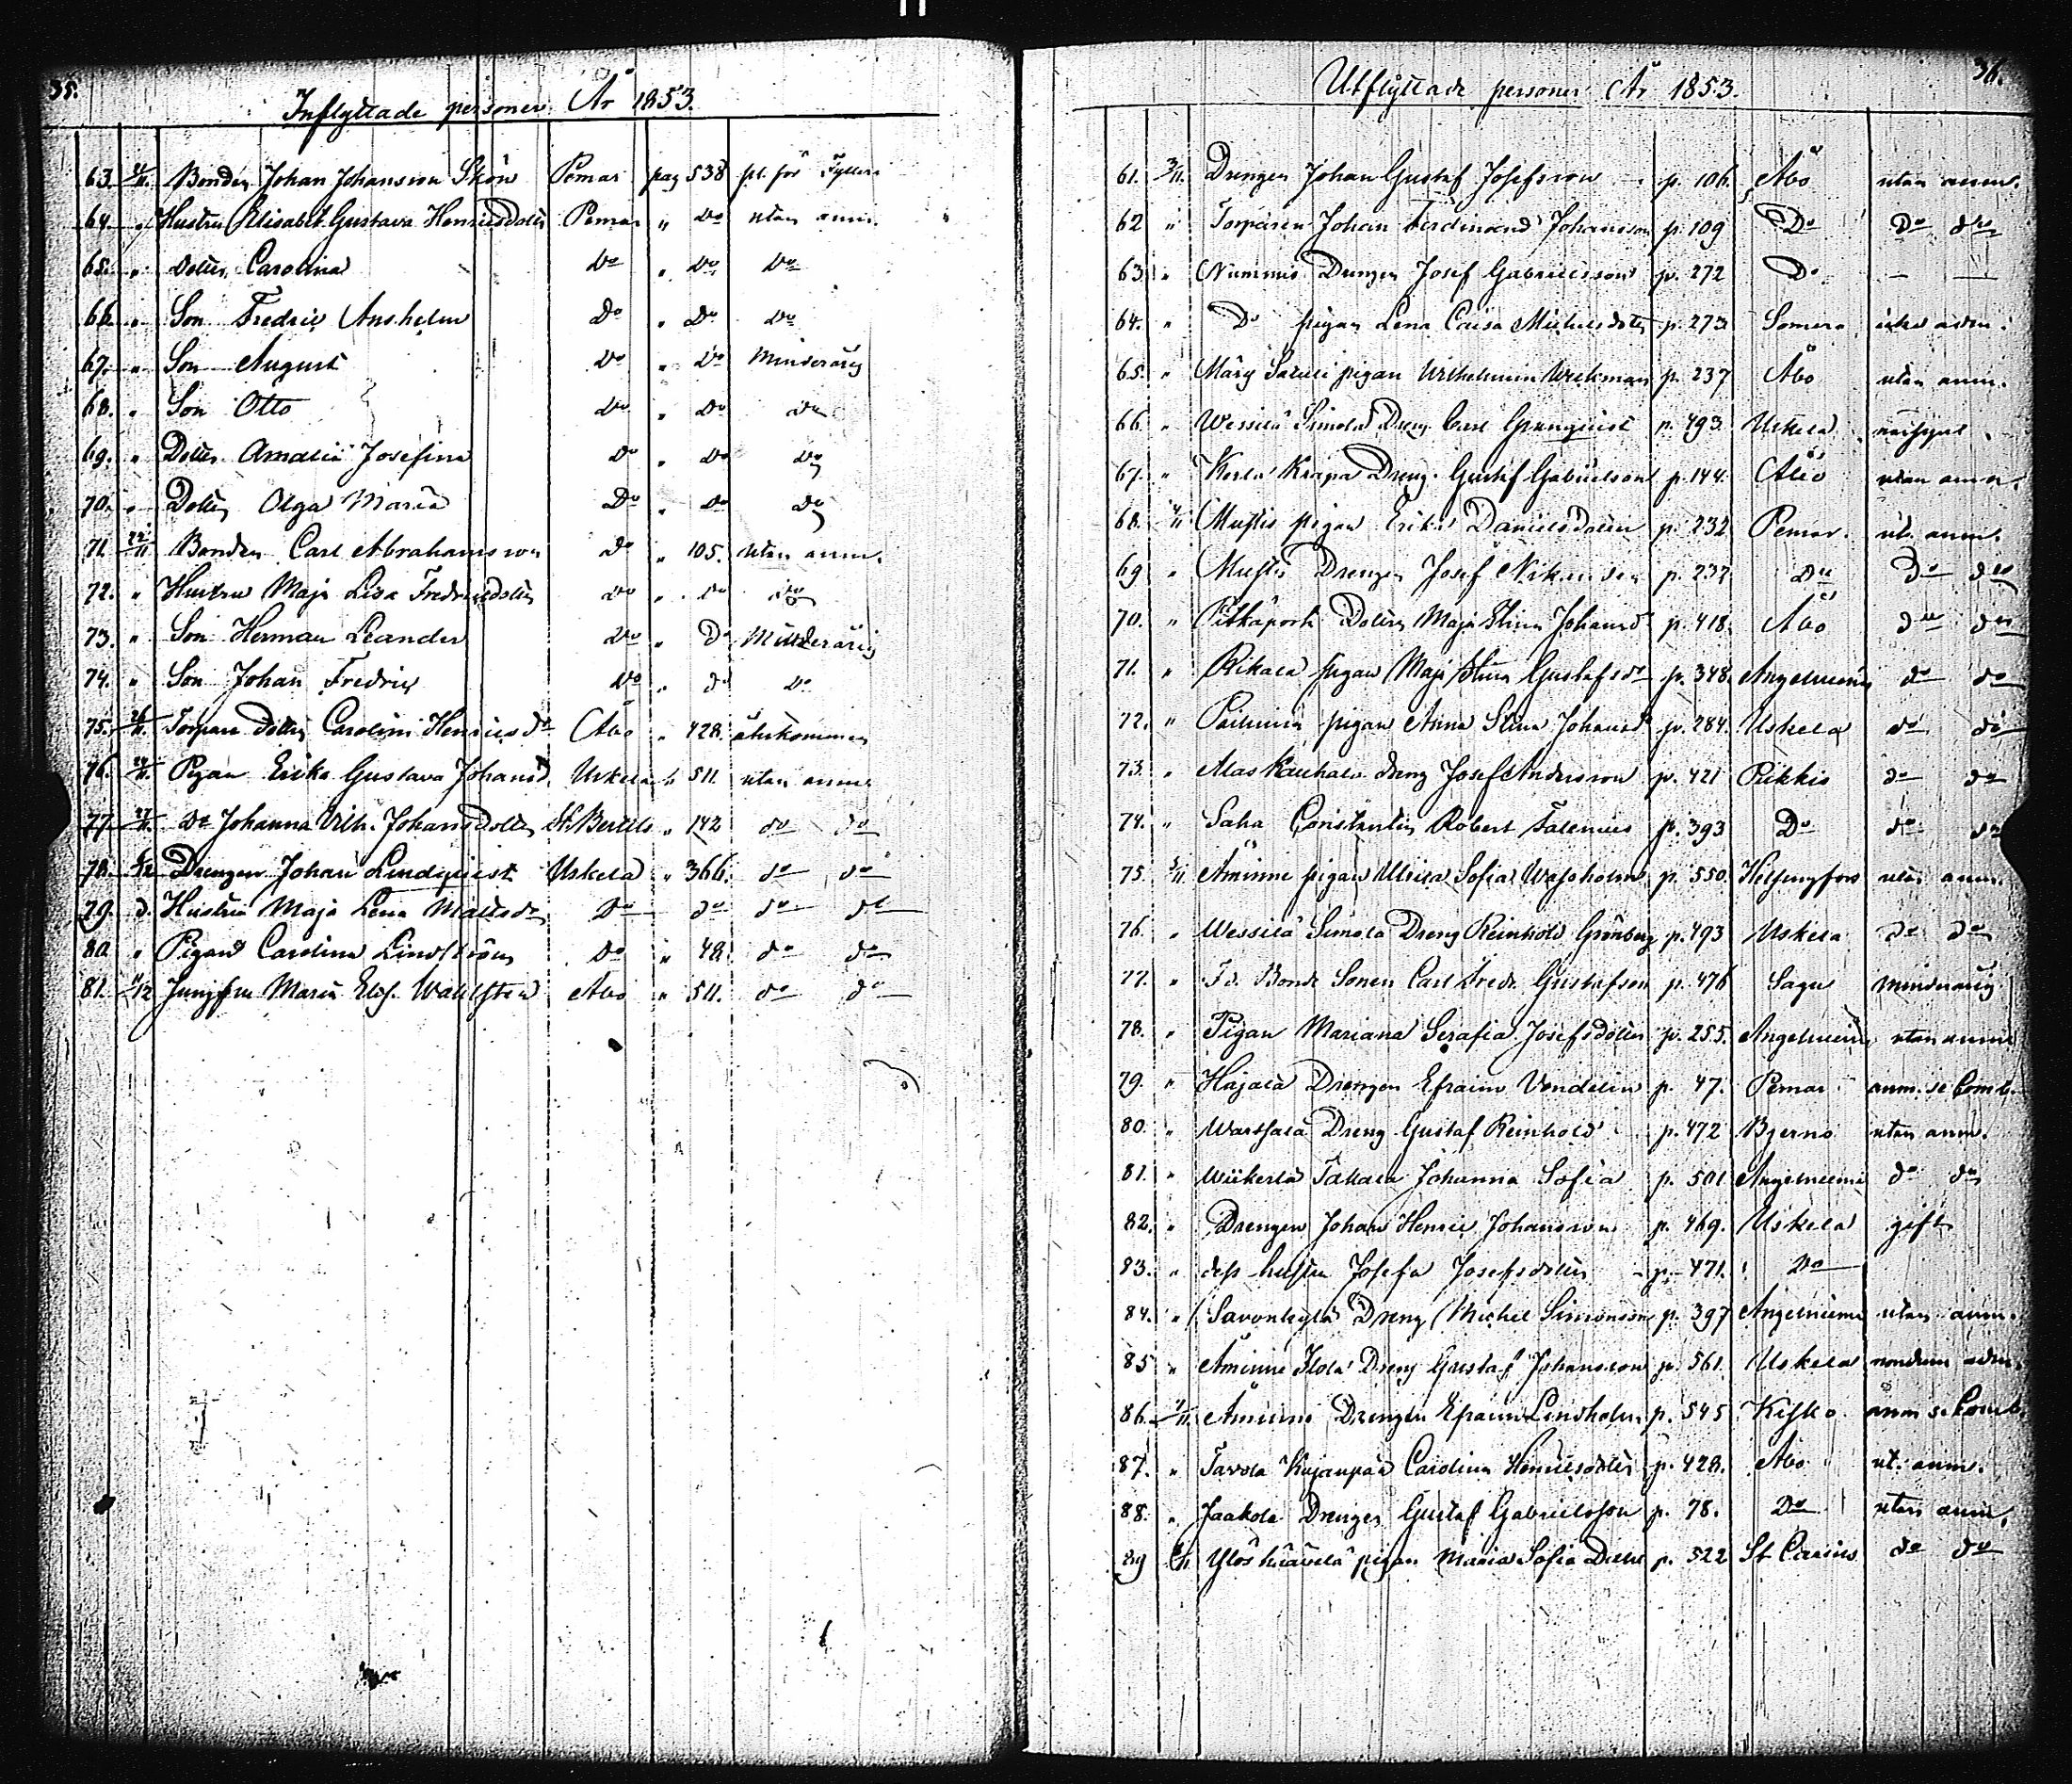 35.
Inflyttade personer År 1853.
63. Bonden Johan Johansson Skön Pemar pag 538 pl. för
64. " Hustru Elisabet Gustava Henricsdotter Pemar " do utan anm.
65. " Dotter Carolina do " do do
66. " Son Fredric Anshelm do " do do
67. " Son August do " do Minderårig
68. " Son Otto do " do do
69. " Dotter Amalia Josefina do " do do
70. " Dotter Olga Maria do " do do
71. 22/11 Bonden Carl Abrahamsson do " 105. utan anm.
72. " Hustru Maja Lisa Fredricsdotter do " do do
73. " Son Herman Leander do " do Minderårig
74. " Son Johan Fredric do " do do
75. Torpare dotter Carolina Henricsdr Åbo " 428. återkommen
76. Pigan Erika Gustava Johansd. Uskela " 511. utan anm.
77. Do Johanna Vilh. Johansdotter St. Bertils " 142 do do
78. Drengen Johan Lindqvist Uskela " 366. do do
79. d. Hustru Maja Lena Mattsdr Do do do do
80. " Pigan Carolina Lindström Do " 48. do do
81. Jungfru Maria Elis. Wahlsten Åbo " 511. do do
36.
Utflyttade personer År 1853.
61. 3/11. Drengen Johan Gustaf Josefsson p. 106. Åbo utan anm.
62 " Torparen Johan Ferdinand Johansson p. 109 Do Do do
63. " Nummis Drengen Josef Gabrielsson p. 272 Do
64. " Do pigan Lena Caisa Michelsdotter p. 273 Somero icke adm.
65. " Märy pigan Wilhelmin Wickman p. 237 Åbo utan anm.
66. " Wessilä Simola Dreng Carl Granqvist p. 493. Uskela
67. " Kerla Krapa Dreng Gustaf Gabrielsson p. 144. Åbo utan anm.
68. Muftis pigan Erika Danielsdotter p. 232 Pemar. ut. anm.
69 " Muftis Drengen Josef Nikander p. 232 Do Do do
70. " Pitkäporti Dotter Maja Stina Johansdr p. 418. Åbo do do
71. " Rikala pigan Maja Stina Gustafsdr p. 348. Angelniemi do do
72. " pigan Anna Stina Johansdr p. 284. Uskela do do
73. " Alas Kaukala dreng Josef Andersson p. 421 Pikkis do do
74. " Saha Constantin Robert Falenius p. 393 Do do do
75. Åminne pigan Ulrica Sofia p. 550. Helsingfors utan anm.
76. " Wessilä Simola Dreng Reinhold Grönberg p. 493 Uskela do do
77. " F.d. Bonde Sonen Carl Fredr. Gustafson p. 476 Sagu minderårig
78. " Pigan Mariana Serafia Josefsdotter p. 255. Angelniemi utan anm.
79. " Hajala Drengen Efraim Vendelin p. 47. Pemar anm. se Comb.
80. " Wartsala Dreng Gustaf Reinhold p. 472 Bjerno utan anm.
81. " Wiikerla Takala Johanna Sofia p. 501 Angelniemi do do
82. " Drengen Johan Henric Johansson p. 469. Uskela gift
83. " dess hustru Josefa Josefsdotter p. 471. Do
84. " Savonkylä Dreng Michel Simonsson p. 397 Angelniemi utan anm.
85 " Åminne Dreng Gustaf Johansson p. 561. Uskela nondum adm.
86. Åminne Drengen Efraim Lindholm p. 545 Kisko anm se Comb.
87. " Tavola Kujanpää Carolina Henricsdotter p. 428. Åbo ut. anm.
88. " Jaakola Drengen Gustaf Gabrielsson p. 78. Do utan anm.
89 pigan Maria Sofia p. 522 St Carins do do